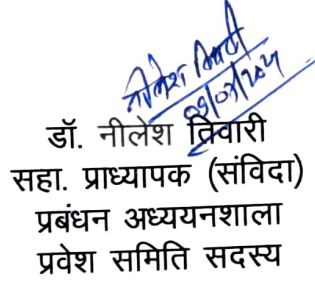 नीलेश तिवारी
डॉ. नीलेश तिवारी
सहा. प्राध्यापक (संविदा)
प्रबंधन अध्ययनशाला
प्रवेश समिति सदस्य